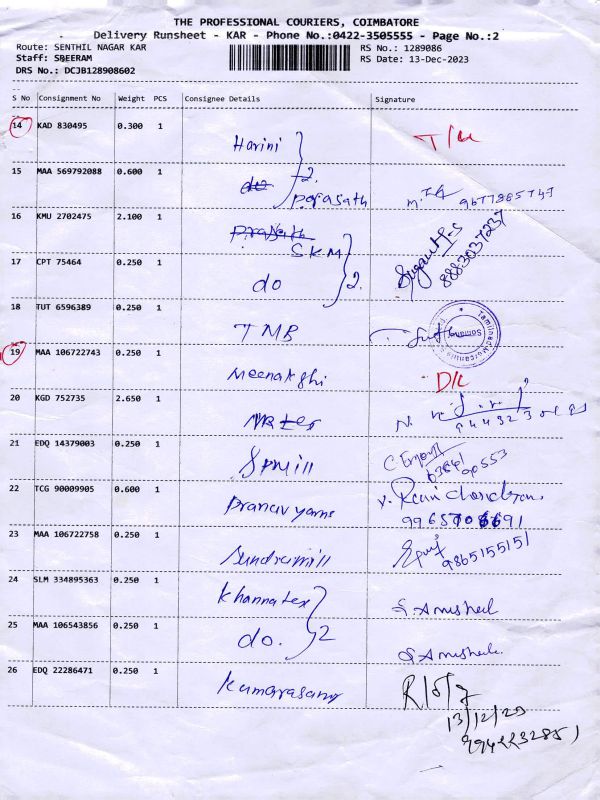 THE PROFESSIONAL COURIERS, COIMBATORE
Delivery Runsheet - KAR - Phone No.:0422-3505555 - Page No.:2
Route: SENTHIL NAGAR KAR
RS No.: 1289086
Staff: SBEERAM
RS Date: 13-Dec-2023
DRS No.: DCJB128908602
S No Consignment No Weight PCS Consignee Details Signature
14 KAD 830495 0.300 1 Harini T/L
15 MAA 569792088 0.600 1 do 2
16 KMU 2702475 2.100 1 SKM
17 CPT 75464 0.250 1 do 2. 8883037237
18 TUT 6596389 0.250 1 TMB
19 MAA 106722743 0.250 1 Meenakshi D/L
20 KGD 752735 2.650 1
21 EDQ 14379003 0.250 1 Spmill
22 TCG 90009905 0.600 1 Pranav yarns
23 MAA 106722758 0.250 1 Sundramill 9865155151
24 SLM 334895363 0.250 1 Khannatex
25 MAA 106543856 0.250 1 do. 2
26 EDQ 22286471 0.250 1 Kumarasamy
13/12/23